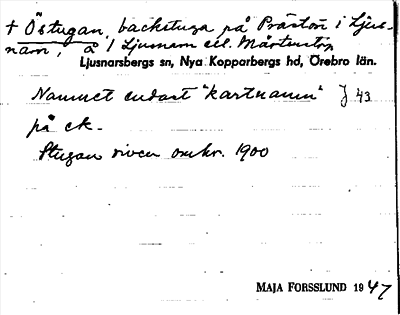 † Östugan, backstuga på Prästön i Ljus-
nam, å 1 Ljusnam ell. Mårtenstorp
Ljusnarsbergs sn, Nya Kopparbergs hd, Örebro län.
Namnet endast "kartnamn" J 43
på ek.
Stugan riven omkr. 1900
MAJA FORSSLUND 1947